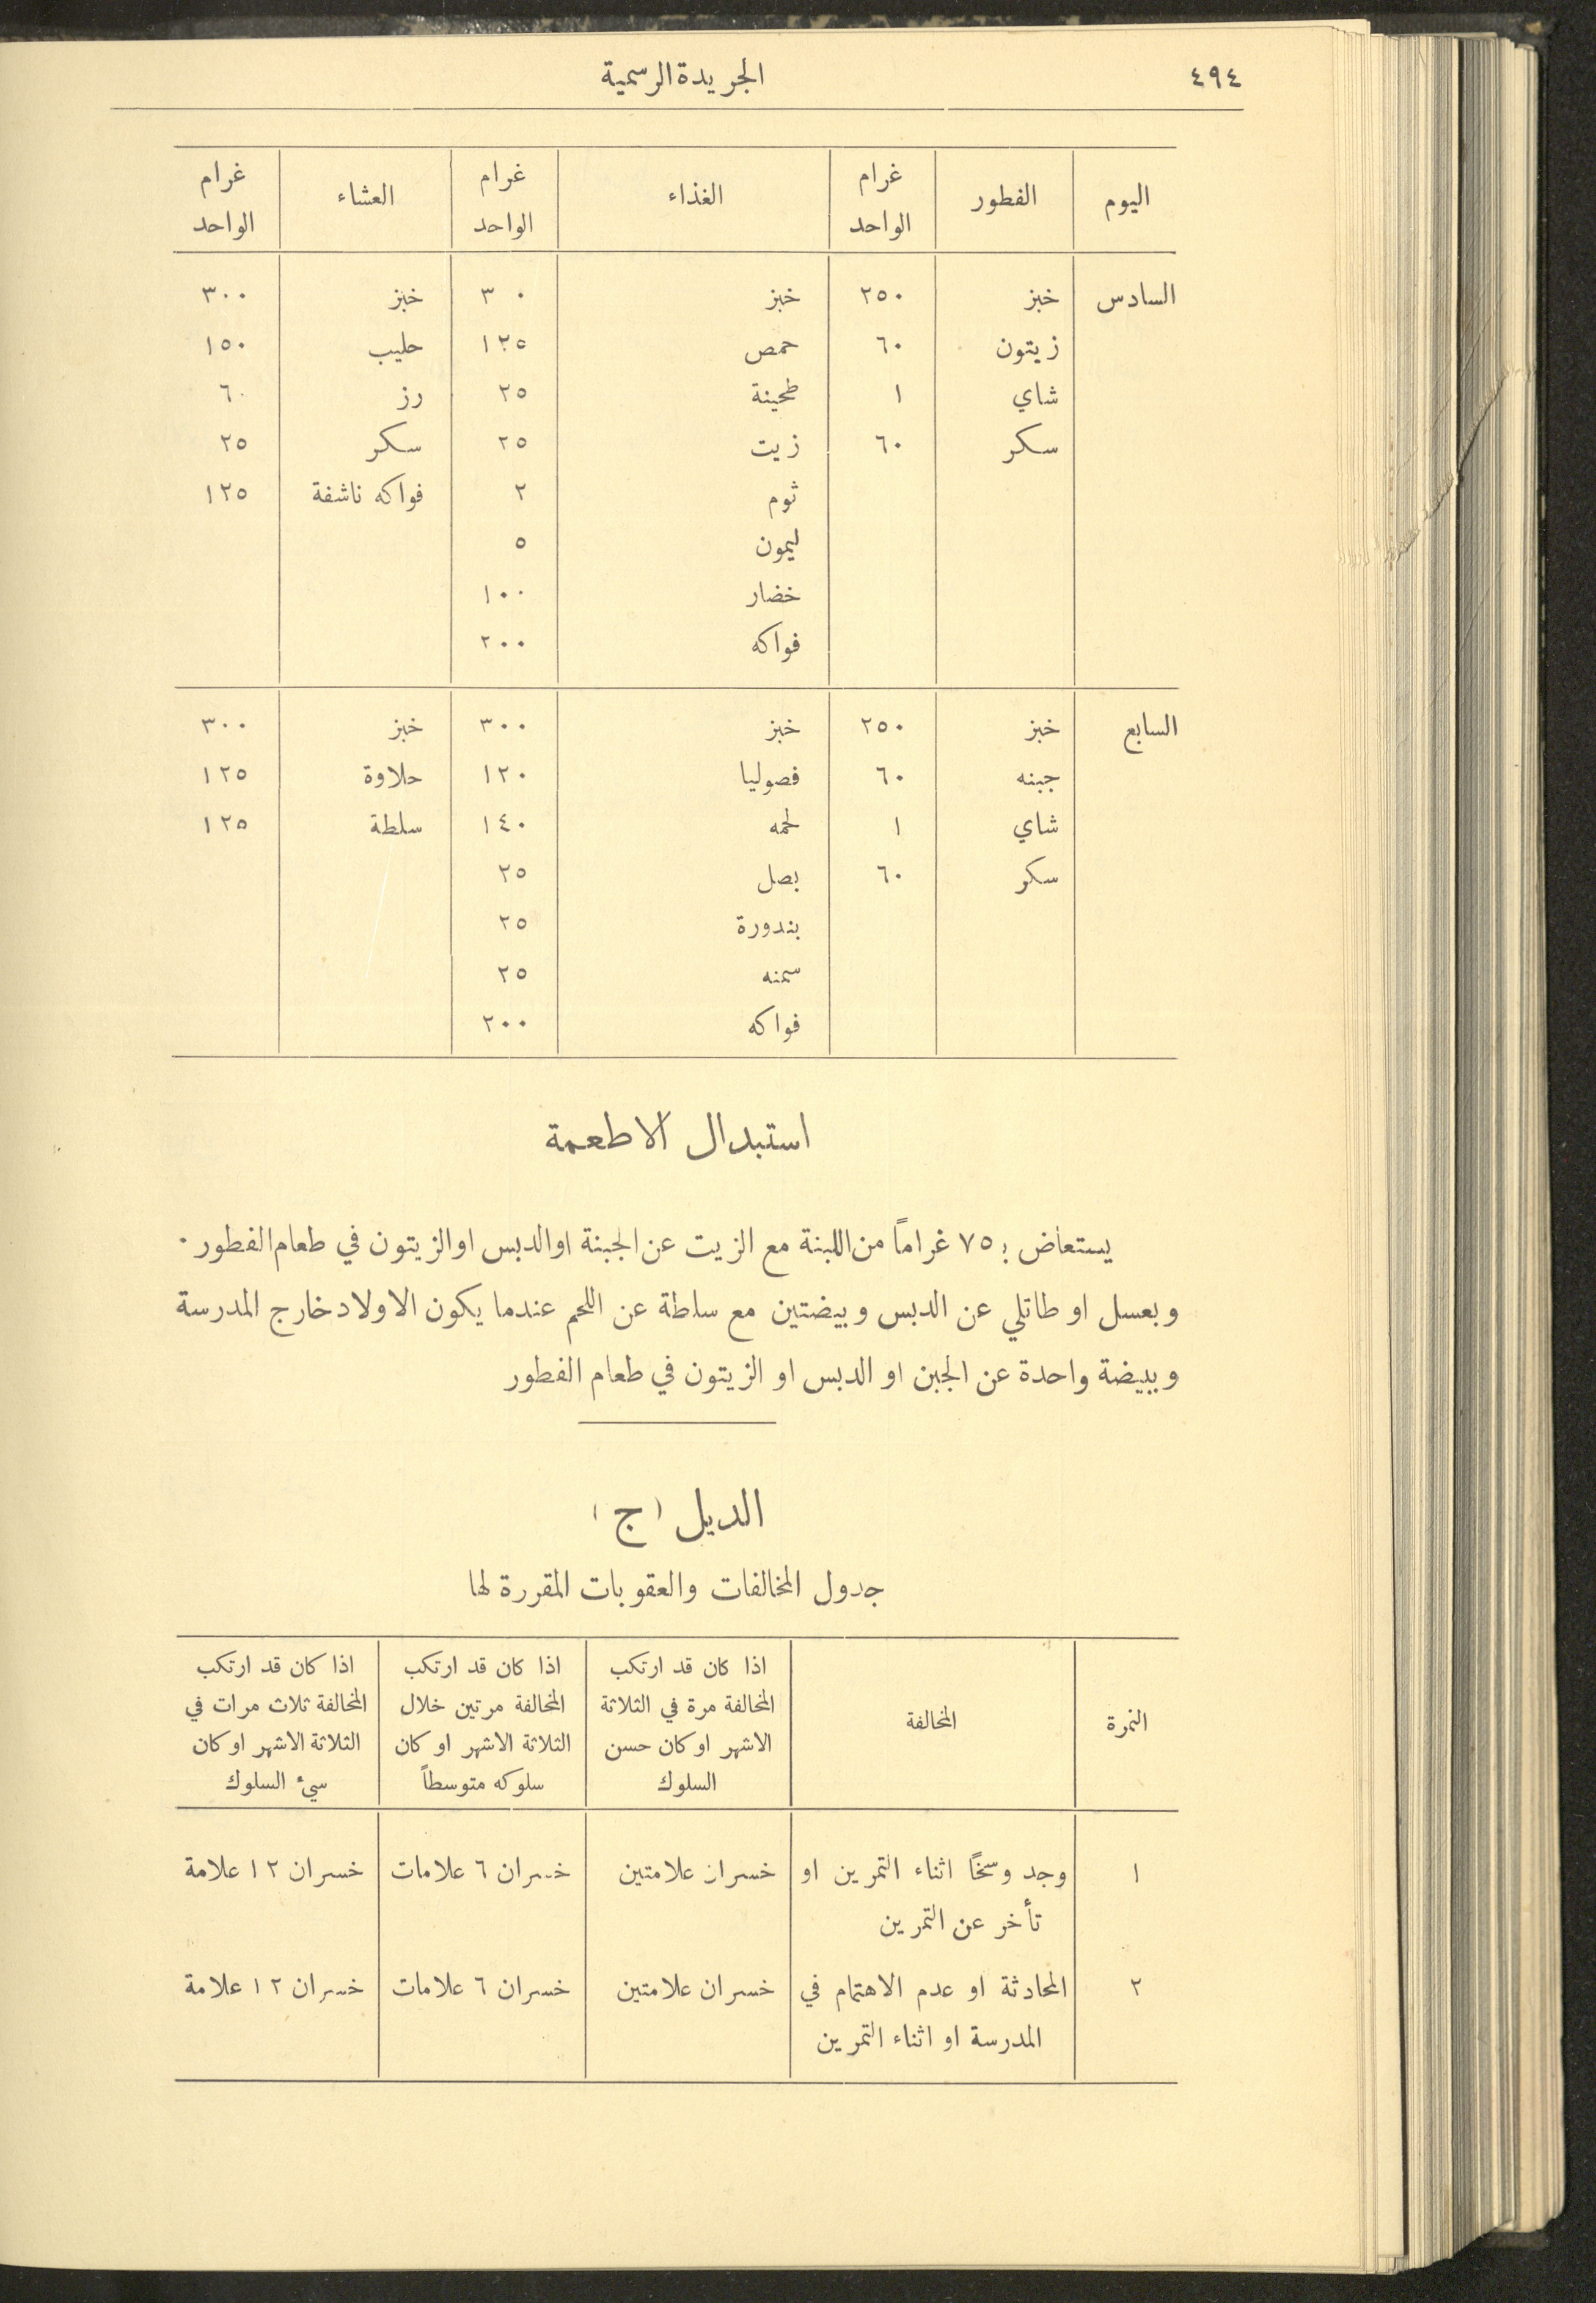 ٤٩٤ الجريدة الرسمية
اليوم الفطور غرام الواحد الغذاء غرام الواحد العشاء غرام الواحد
السادس خبز ٢٥٠ خبز ٣٠ خبز ٣٠٠
زيتون ٦٠ حمص ١٢٥ حليب ١٥٠
شاي ١ طحينة ٢٥ رز ٦٠
سكر ٦٠ زيت ٢٥ سكر ٢٥
ثوم ٢ فواكه ناشفة ١٢٥
ليمون ٥
خضار ١٠٠
فواكه ٢٠٠
السابع خبز ٢٥٠ خبز ٣٠٠ خبز ٣٠٠
جبنه ٦٠ فصوليا ١٢٠ حلاوة ١٢٥
شاي ١ لحمه ١٤٠ سلطة ١٢٥
سكر ٦٠ بصل ٢٥
بندورة ٢٥
سمنه ٢٥
فواكه ٢٠٠
استبدال الاطعمة
يستعاض بـ ٧٥ غراماً من اللبنة مع الزيت عن الجبنة او الدبس او الزيتون في طعام الفطور .
وبعسل او طاتلي عن الدبس وبيضتين مع سلطة عن اللحم عندما يكون الاولاد خارج المدرسة
وبيضة واحدة عن الجبن او الدبس او الزيتون في طعام الفطور
الديل (ج)
جدول المخالفات والعقوبات المقررة لها
النمرة
المخالفة
اذا كان قد ارتكب
المخالفة مرة في الثلاثة
الاشهر او كان حسن
السلوك
اذا كان قد ارتكب
المخالفة مرتين خلال
الثلاثة الاشهر او كان
سلوكه متوسطاً
اذا كان قد ارتكب
المخالفة ثلاث مرات في
الثلاثة الاشهر او كان
سيء السلوك
١ وجد وسخاً اثناء التمرين او خسران علامتين خسران ٦ علامات خسران ١٢ علامة
تأخر عن التمرين
٢ المحادثة او عدم الاهتمام في خسران علامتين خسران ٦ علامات خسران ١٢ علامة
المدرسة او اثناء التمرين